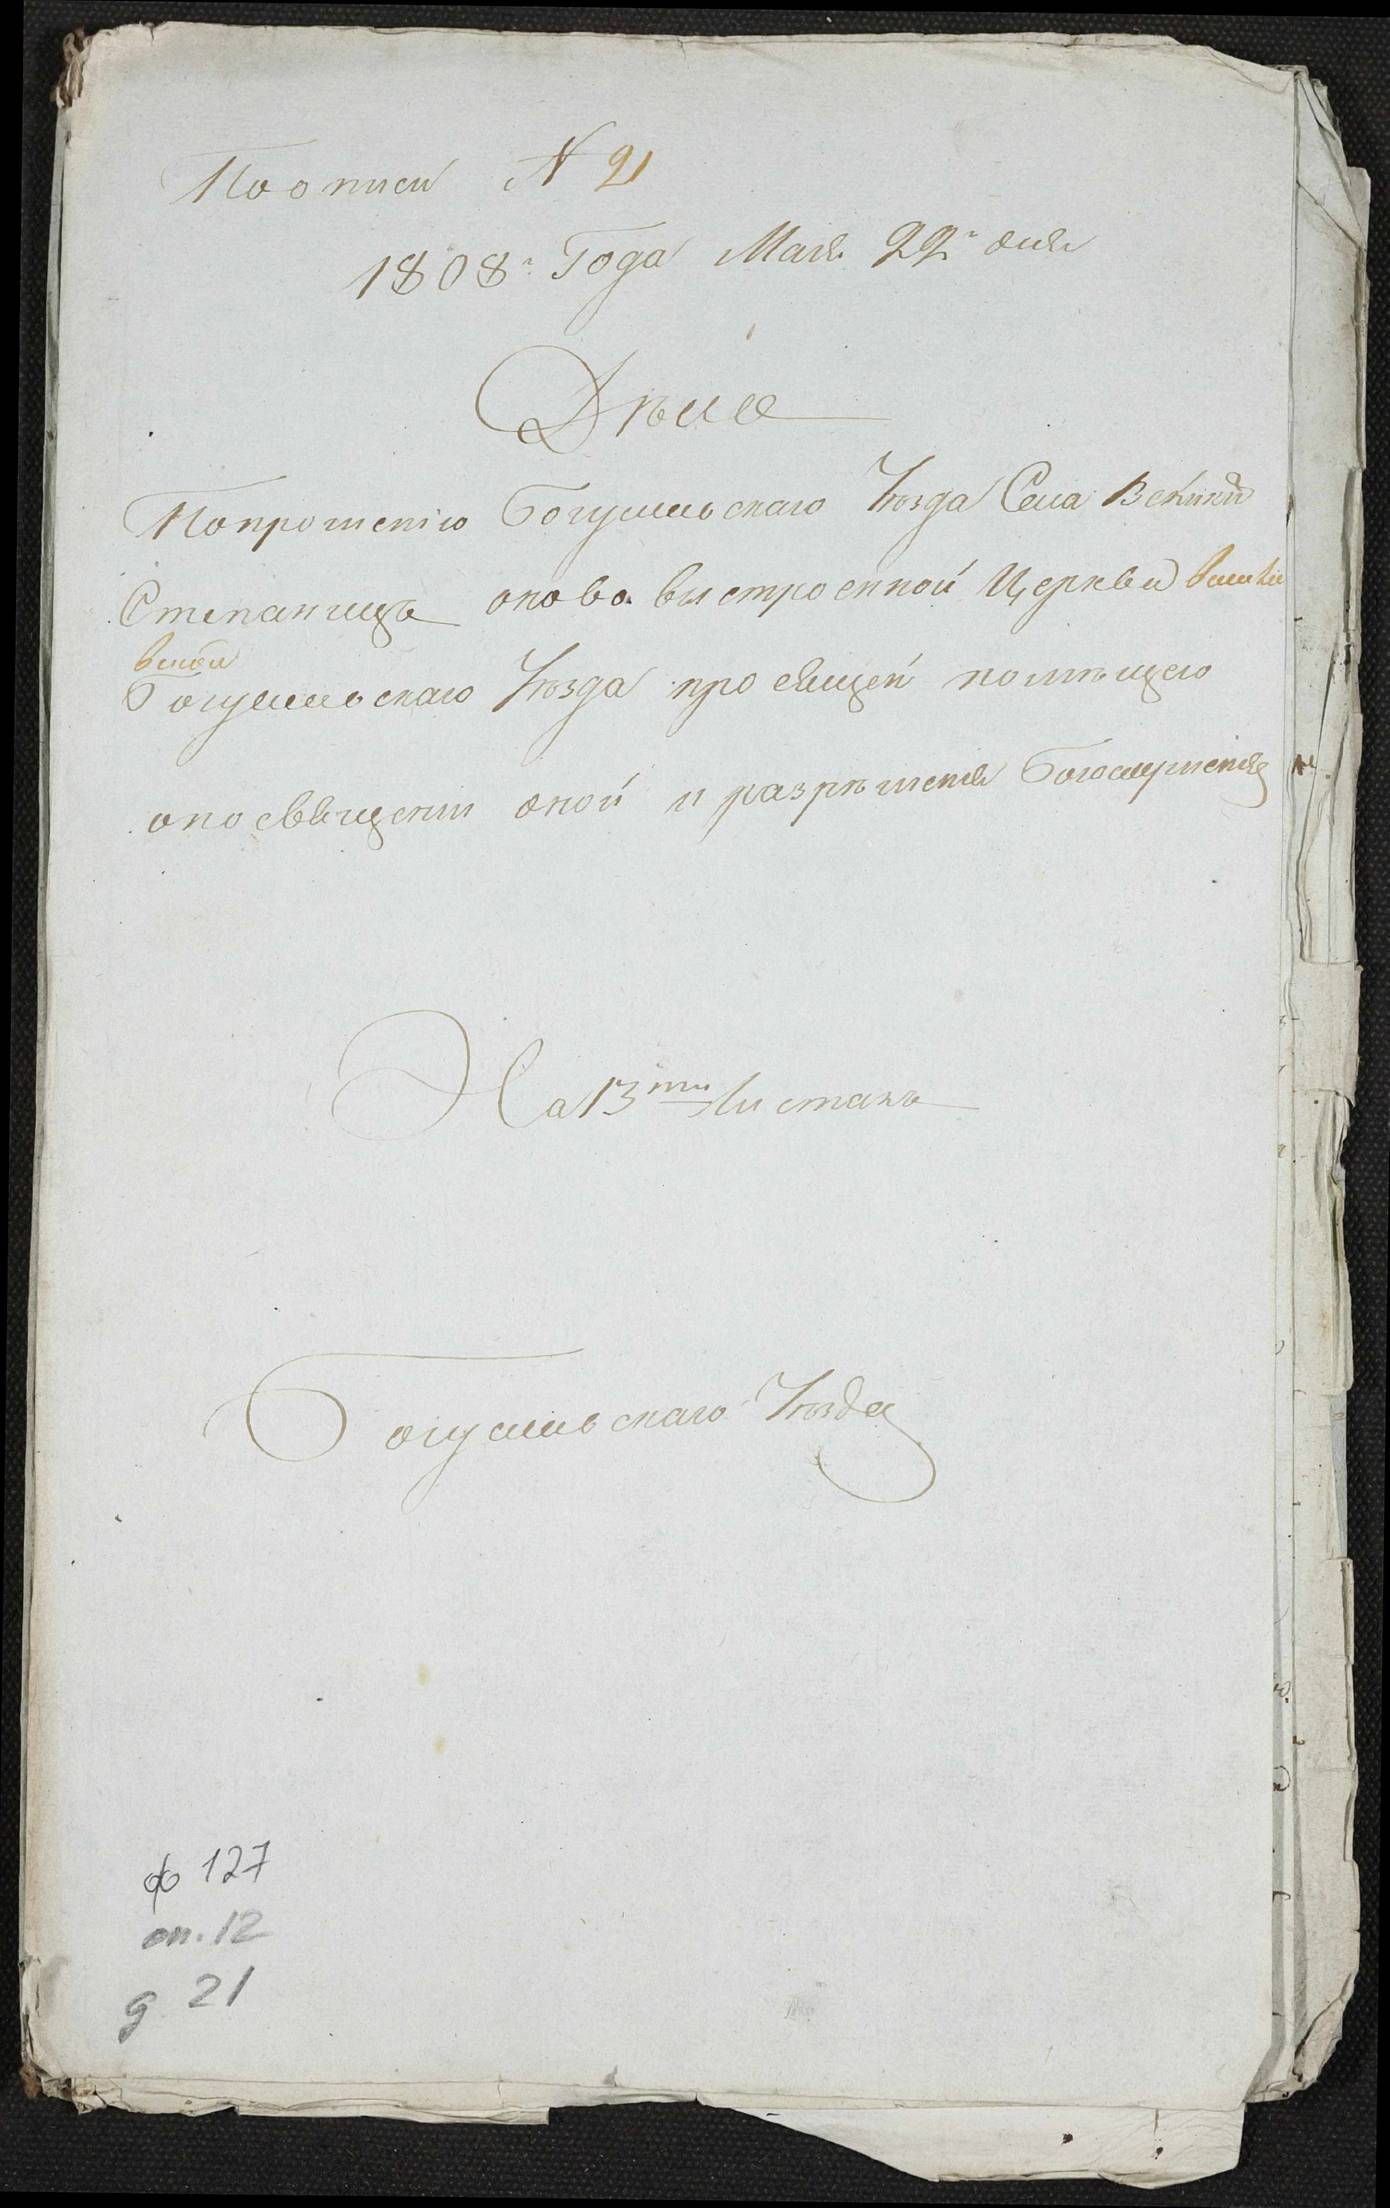 По описи N 21
1808го Года Мая 22го дня
Дѣло
По прошенію Богуславьскаго Уѣзда Села Великихъ
Степанищъ о ново выстроенной Церкви
Богуславьскаго Уѣзда просящей помѣщего
о посвященіи оной и разрѣшенія Богослуженія
На 13ти Листахъ
Богуславьскаго Уѣзда
ф 127
оп. 12
д 21